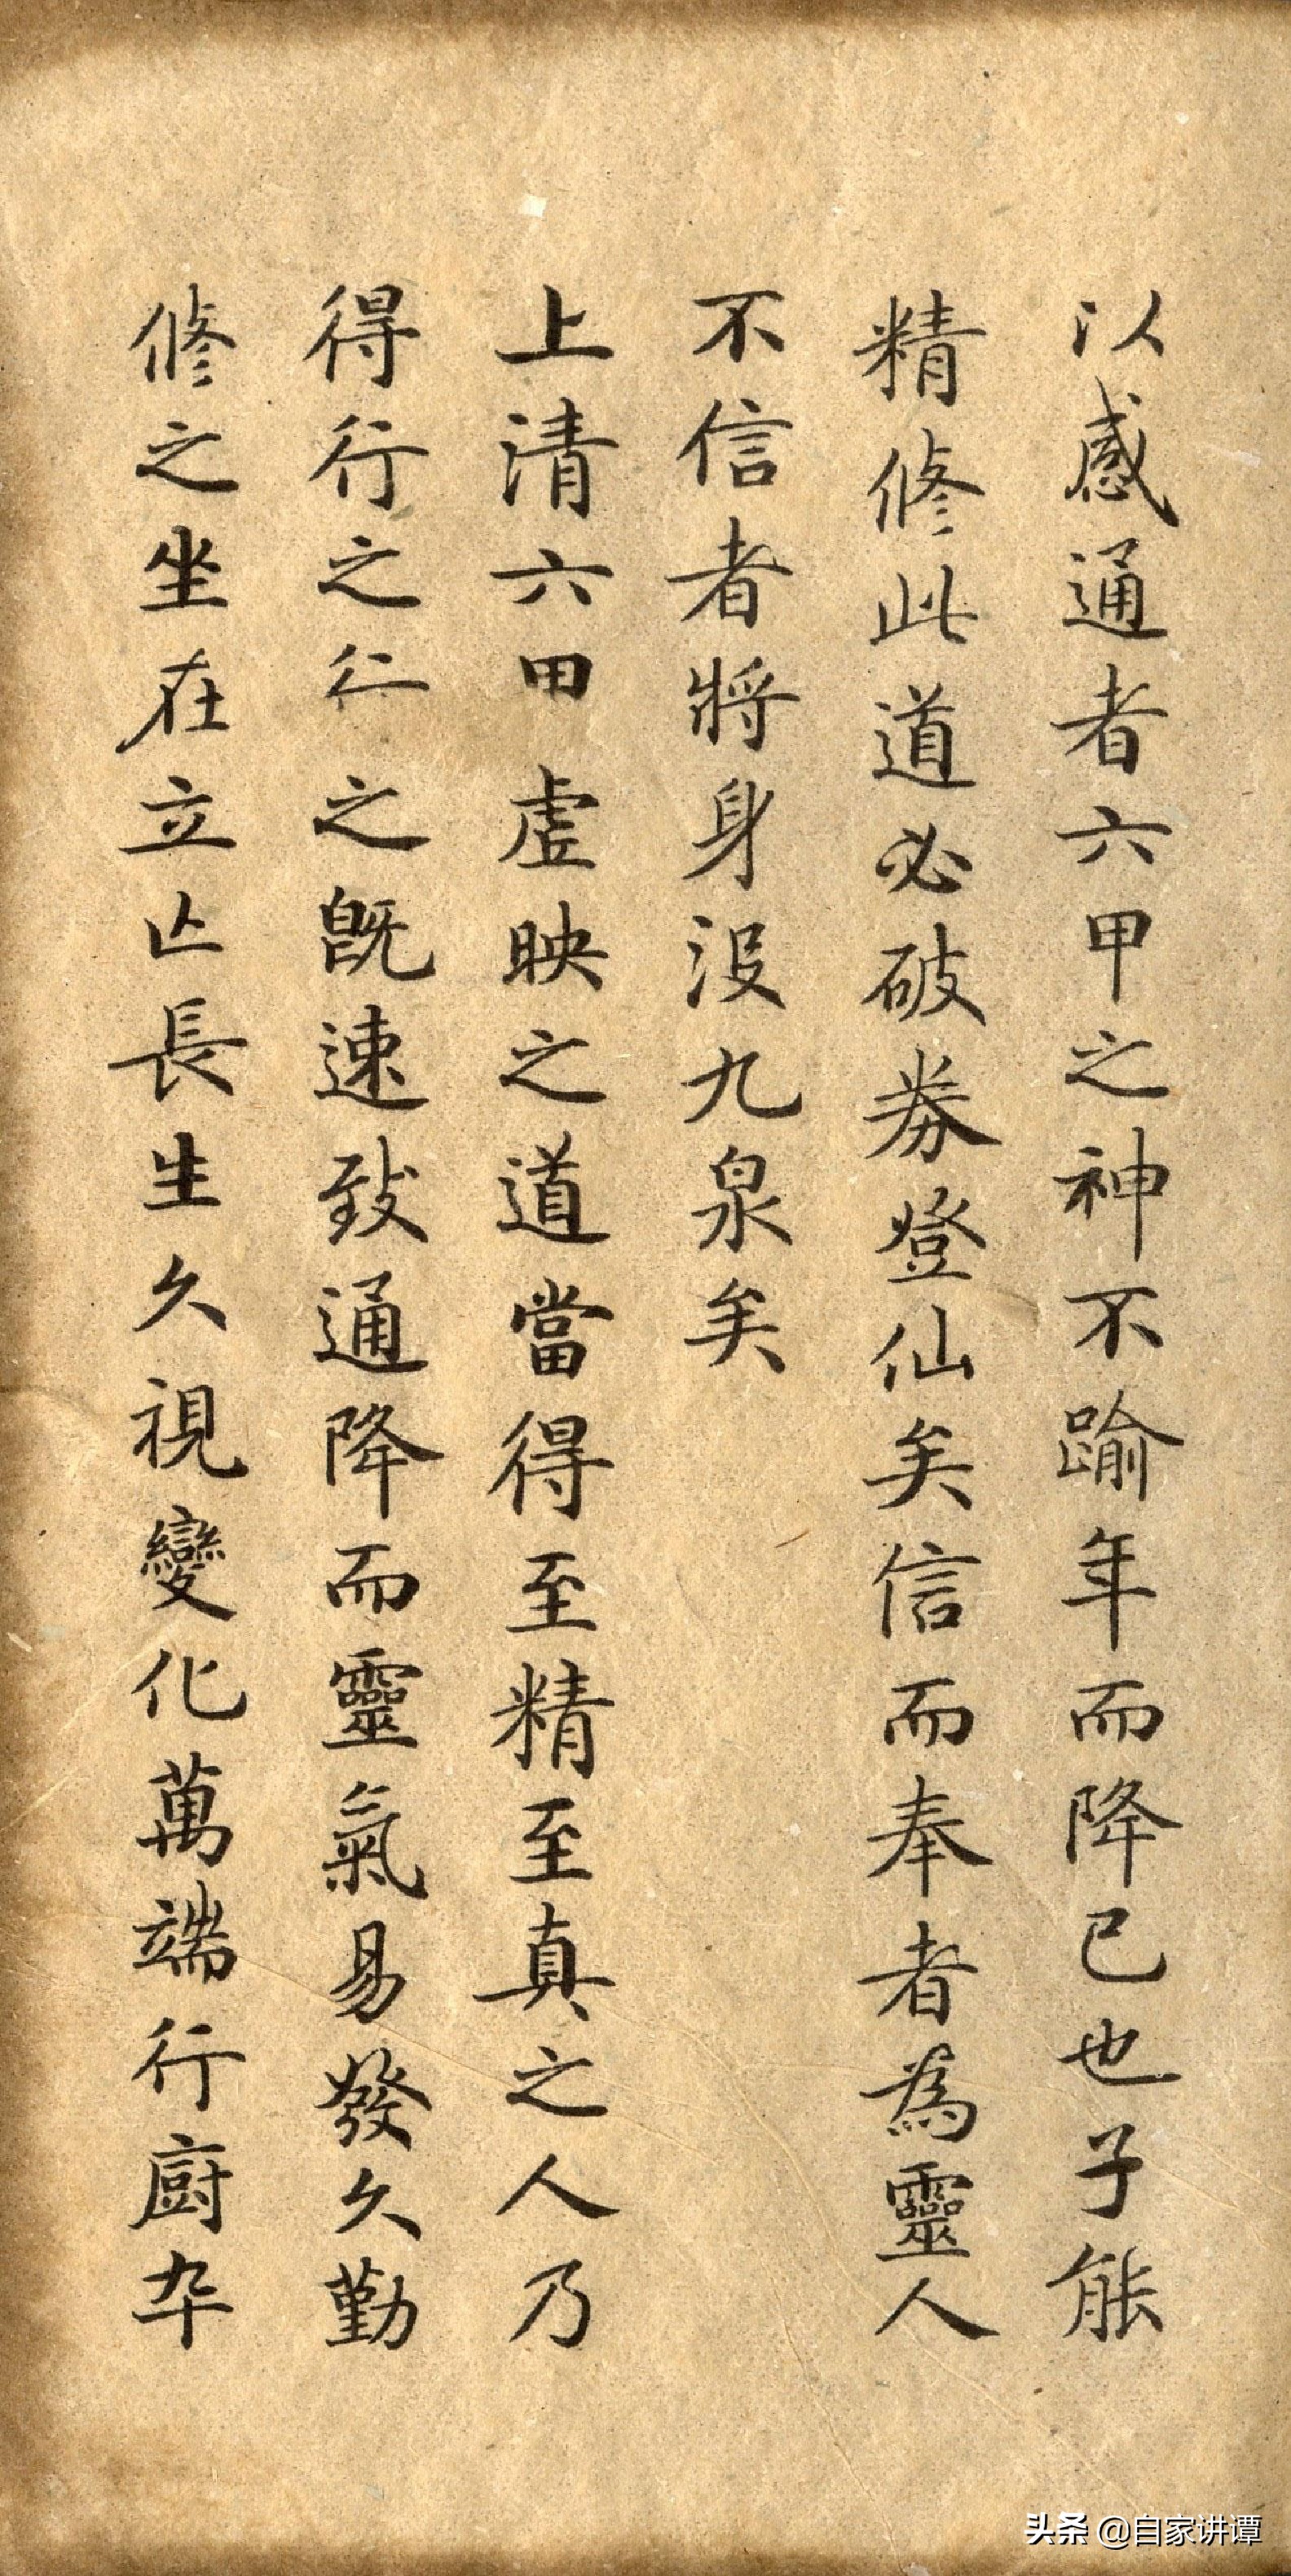 以感通者六甲之神不踰年而降已也子能
精修此道必破券登仙矣信而奉者為靈人
不信者將身没九泉矣
上清六甲虚映之道當得至精至真之人乃
得行之行之既速致通降而靈氣易發久勤
修之坐在立亡長生久視變化萬端行廚卒
头条 @自家讲谭